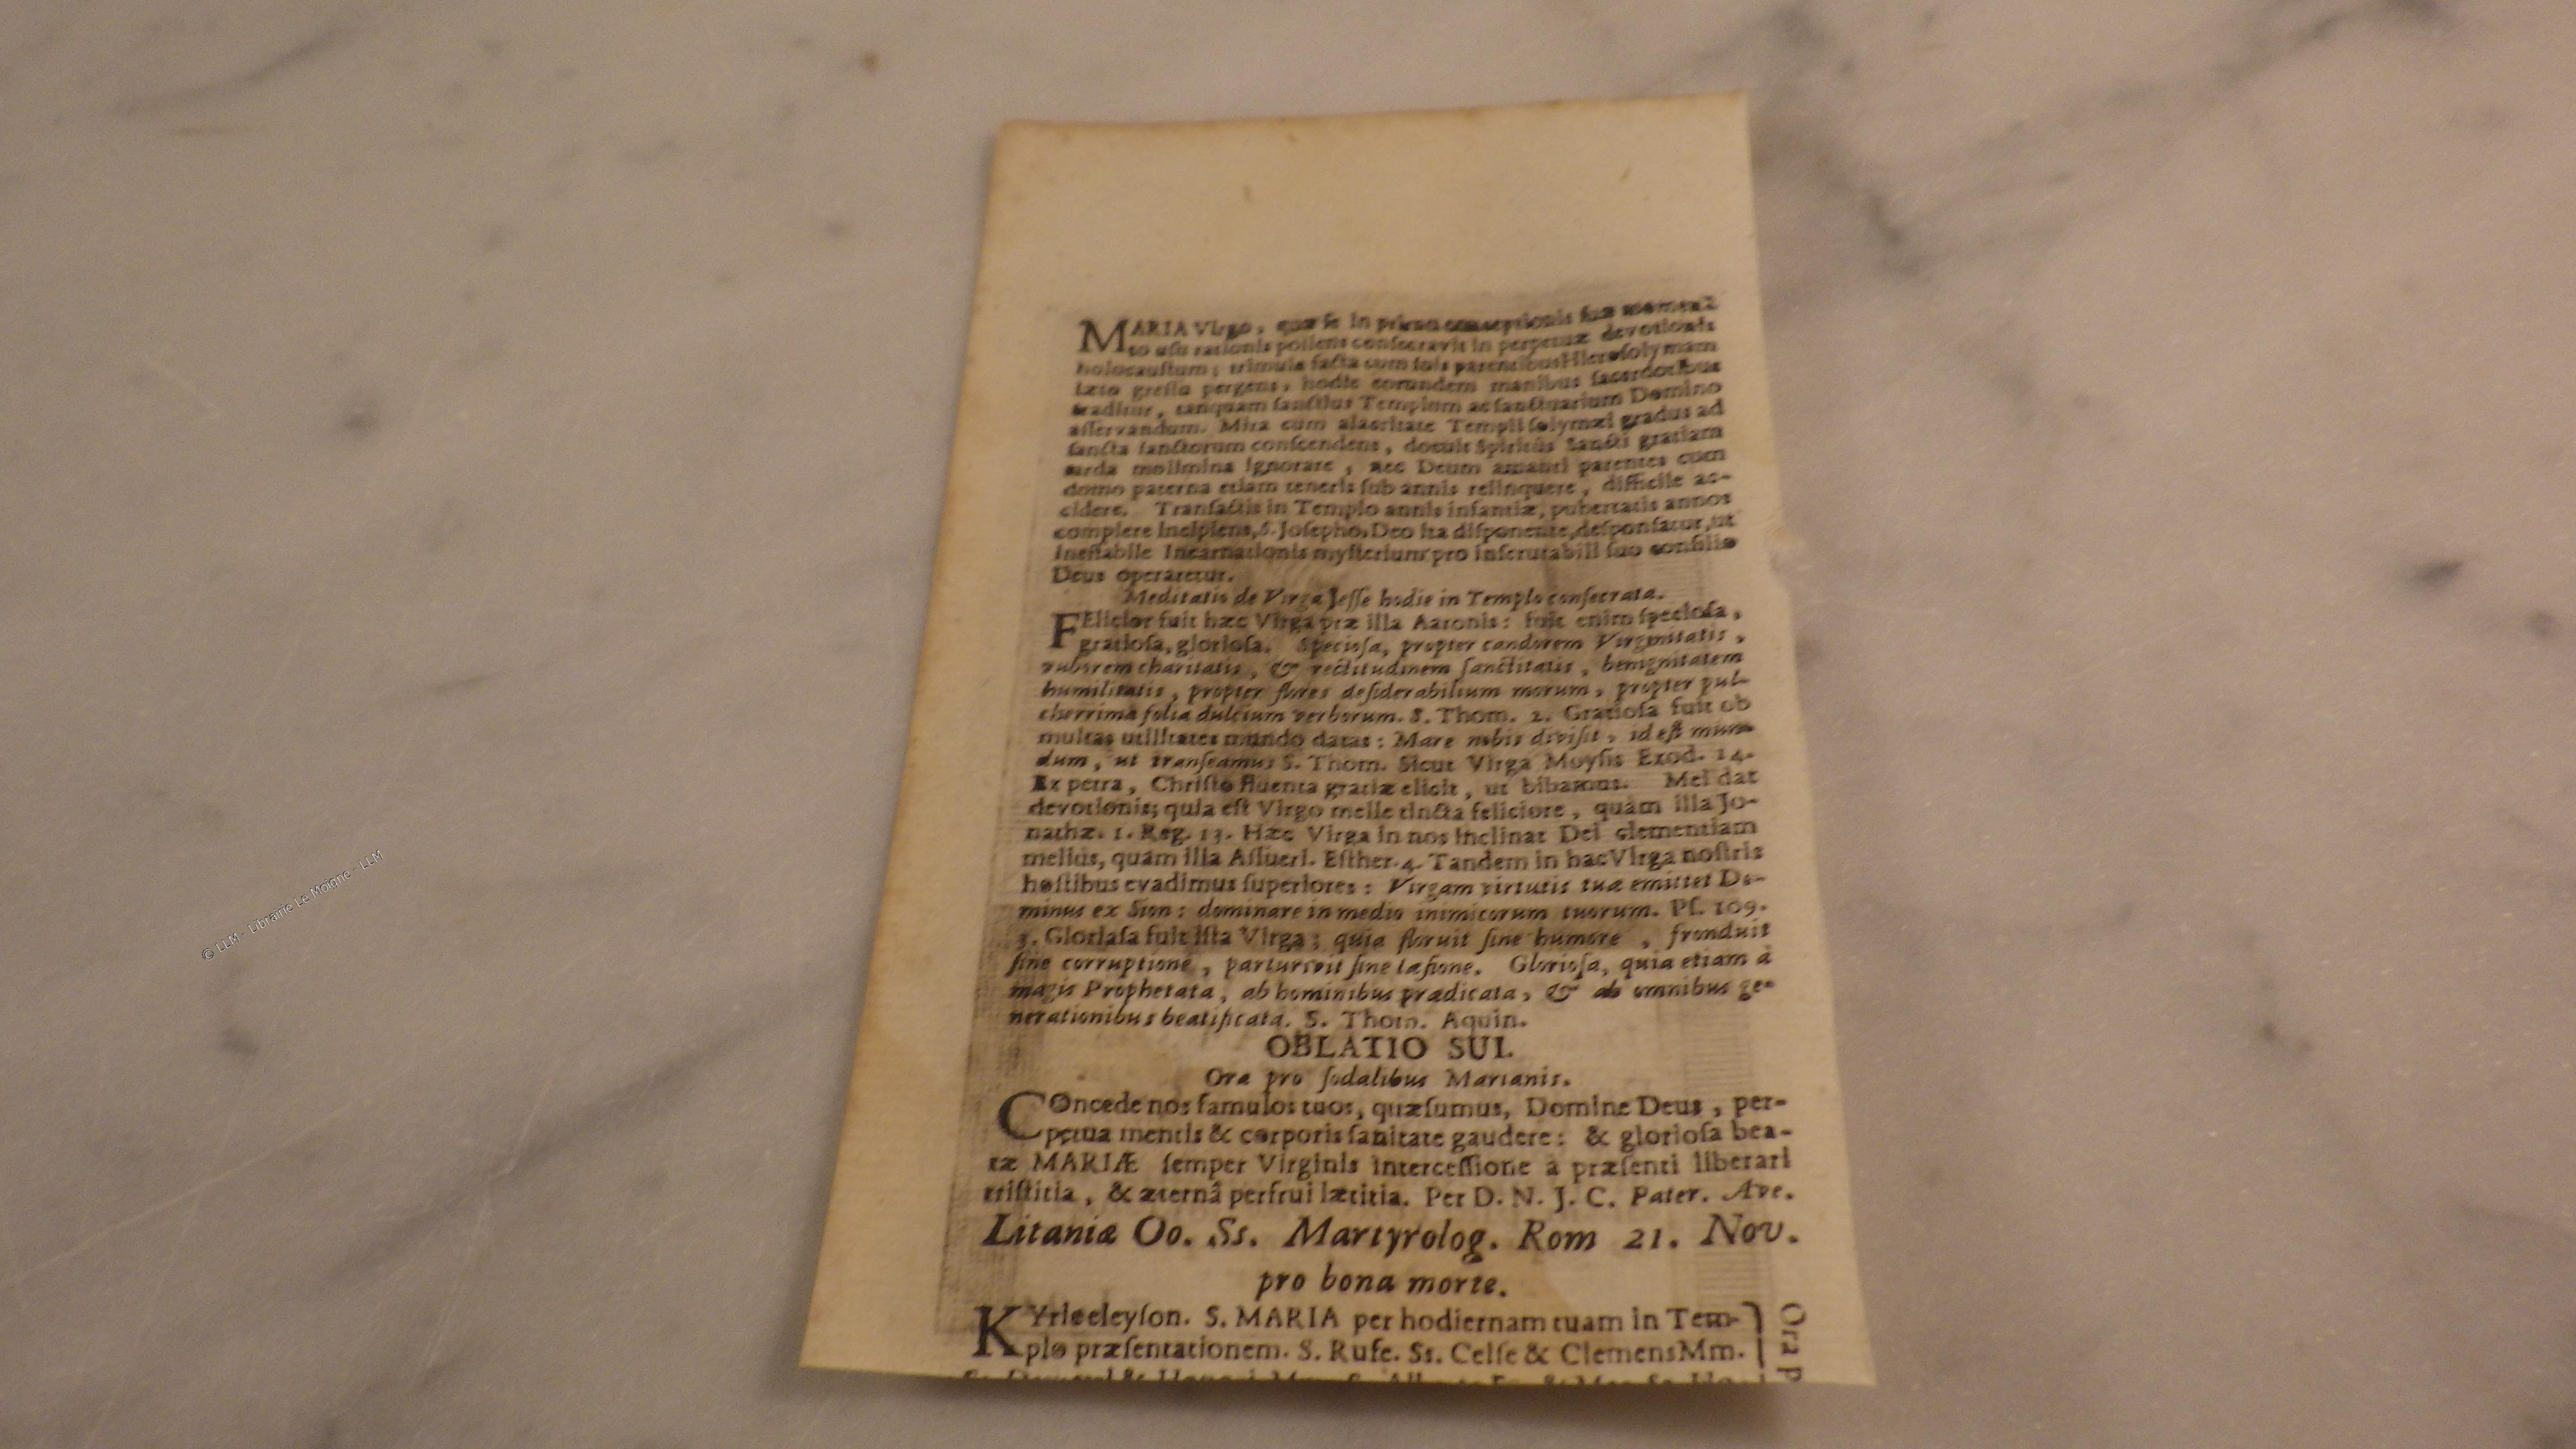 MARIA Virgo, quæ se in primo conceptionis suæ momen-
to usu rationis pollens consecravit in perpetuæ devotionis
holocaustum; trimula facta cum suis parentibus Hierosolymam
læto gressu pergens, hodie eorundem manibus sacerdotibus
traditur, tanquam sanctius Templum ac sanctuarium Domino
asservandum. Mira cum alacritate Templi solymæi gradus ad
sancta sanctorum conscendens, docuit Spiritûs Sancti gratiam
tarda molimina ignorare, nec Deum amanti parentes cum
domo paterna etiam teneris sub annis relinquere, difficile ac-
cidere. Transactis in Templo annis infantiæ, pubertatis annos
complere incipiens, S. Josepho, Deo ita disponente, desponsatur, ut
ineffabile Incarnationis mysterium pro inscrutabili suo consilio
Deus operaretur.
Meditatio de Virga Jesse hodie in Templo consecrata.
FElicior fuit hæc Virga præ illa Aaronis: fuit enim speciosa,
gratiosa, gloriosa. Speciosa, propter candorem Virginitatis,
ruborem charitatis, & rectitudinem sanctitatis, benignitatem
humilitatis, propter flores desiderabilium morum, propter pul-
cherrima folia dulcium verborum. S. Thom. 2. Gratiosa fuit ob
multas utilitates mundo datas: Mare nobis divisit, id est mun-
dum, ut transeamus S. Thom. Sicut Virga Moysis Exod. 14.
Ex petra, Christo fluenta gratiæ elicit, ut bibamus. Mel dat
devotionis; quia est Virgo melle tincta feliciore, quàm illa Jo-
nathæ. 1. Reg. 13. Hæc Virga in nos inclinat Dei clementiam
meliùs, quàm illa Assueri. Esther. 4. Tandem in hac Virga nostris
hostibus evadimus superiores: Virgam virtutis tuæ emittet Do-
minus ex Sion: dominare in medio inimicorum tuorum. Ps. 109.
3. Gloriasa fuit ista Virga; quia floruit sine humore, fronduit
sine corruptione, parturivit sine læsione. Gloriosa, quia etiam à
magis Prophetata, ab hominibus prædicata, & ab omnibus ge-
nerationibus beatificata. S. Thom. Aquin.
OBLATIO SUI.
Ora pro sodalibus Marianis.
COncede nos famulos tuos, quæsumus, Domine Deus, per-
petua mentis & corporis sanitate gaudere: & gloriosa bea-
tæ MARIÆ semper Virginis intercessione à præsenti liberari
tristitia, & æternâ perfrui lætitia. Per D. N. J. C. Pater. Ave.
Litaniæ Oo. Ss. Martyrolog. Rom 21. Nov.
pro bona morte.
KYrieeleyson. S. MARIA per hodiernam tuam in Tem-
plo præsentationem. S. Rufe. Ss. Celse & Clemens Mm.
Ora p
© LLM - Librairie Le Moigne - LLM